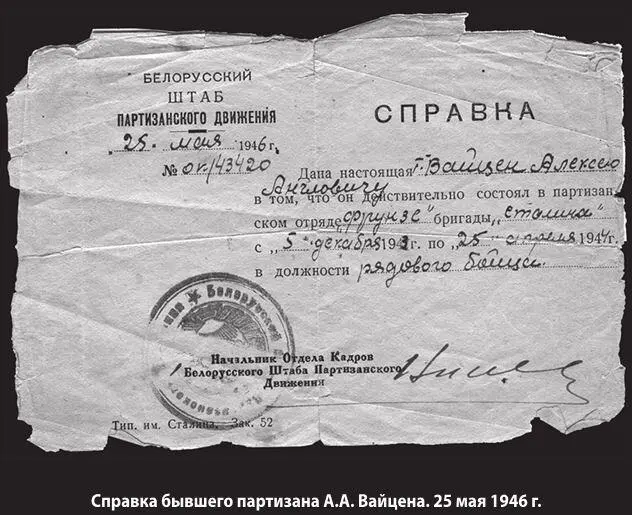 БЕЛОРУССКИЙ
ШТАБ
ПАРТИЗАНСКОГО ДВИЖЕНИЯ
„25„ мая 1946 г.
№ ок/43420
СПРАВКА
Дана настоящая т. Вайцен Алексею
Англовичу
в том, что он действительно состоял в партизан-
ском отряде „Фрунзе“ бригады „Сталина“
с „5„ декабря 1943 г. по „25„ апреля 1944 г.
в должности рядового бойца.
Белорусский
Начальник Отдела Кадров
Белорусского Штаба Партизанского
Движения
Тип. им. Сталина. Зак. 52
Справка бывшего партизана А.А. Вайцена. 25 мая 1946 г.